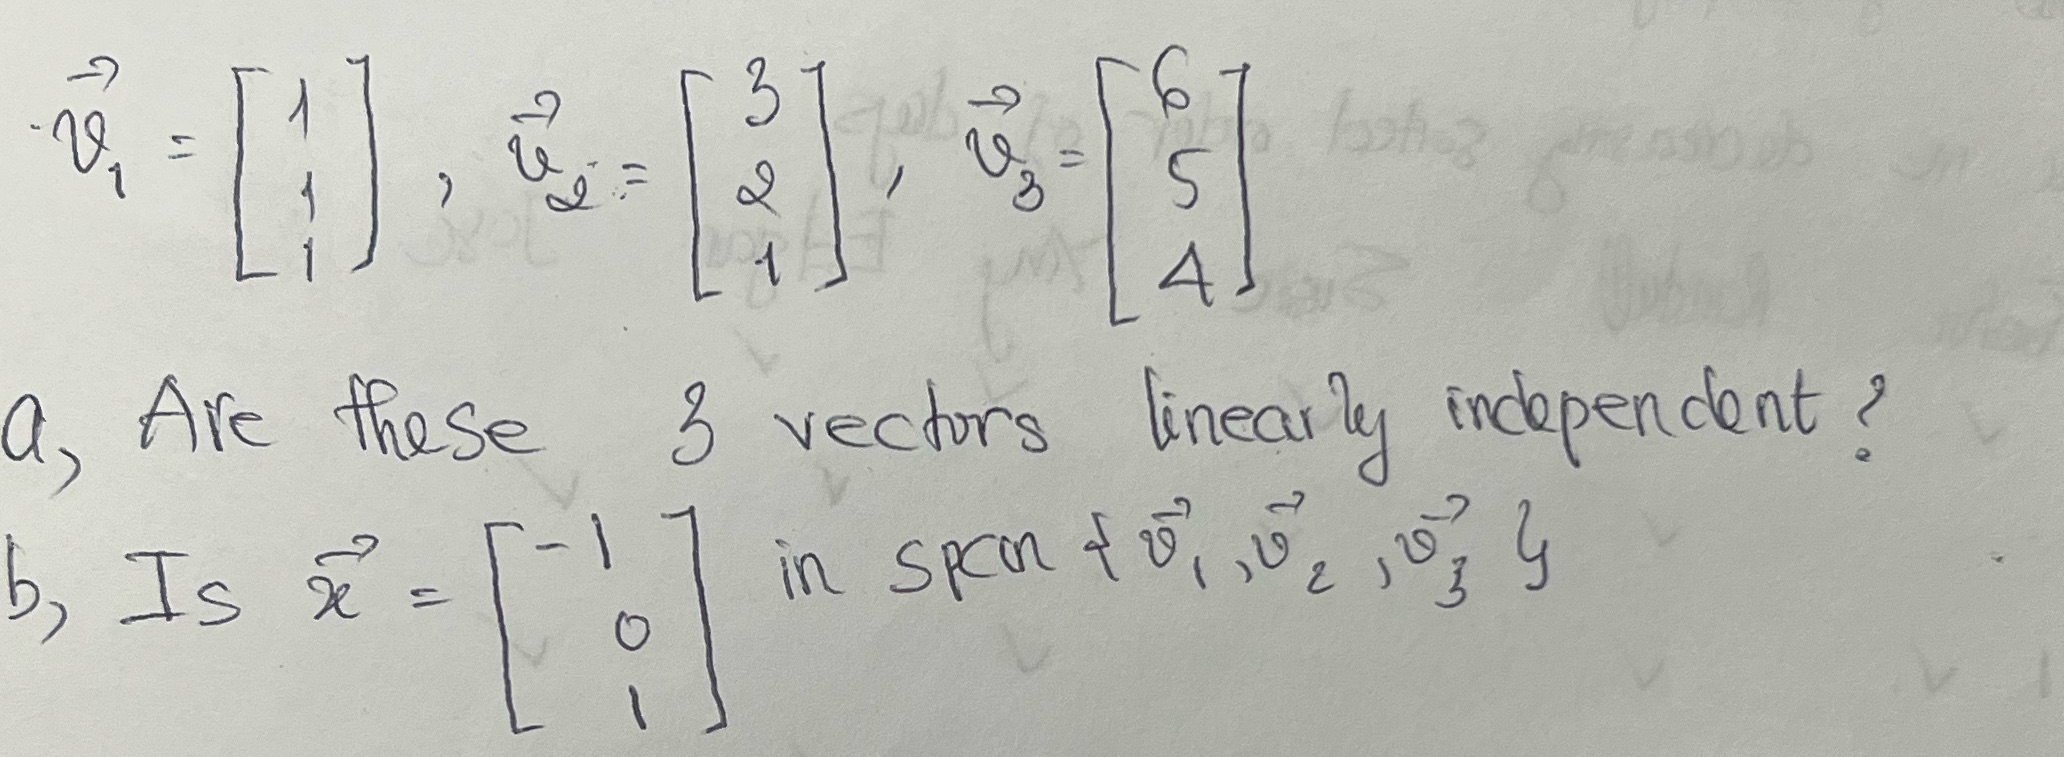 v⃗₁ = [1 1 1], v⃗₂ = [3 2 1], v⃗₃ = [6 5 4]
a, Are these 3 vectors linearly independent?
b, Is x⃗ = [-1 0 1] in span {v⃗₁, v⃗₂, v⃗₃}